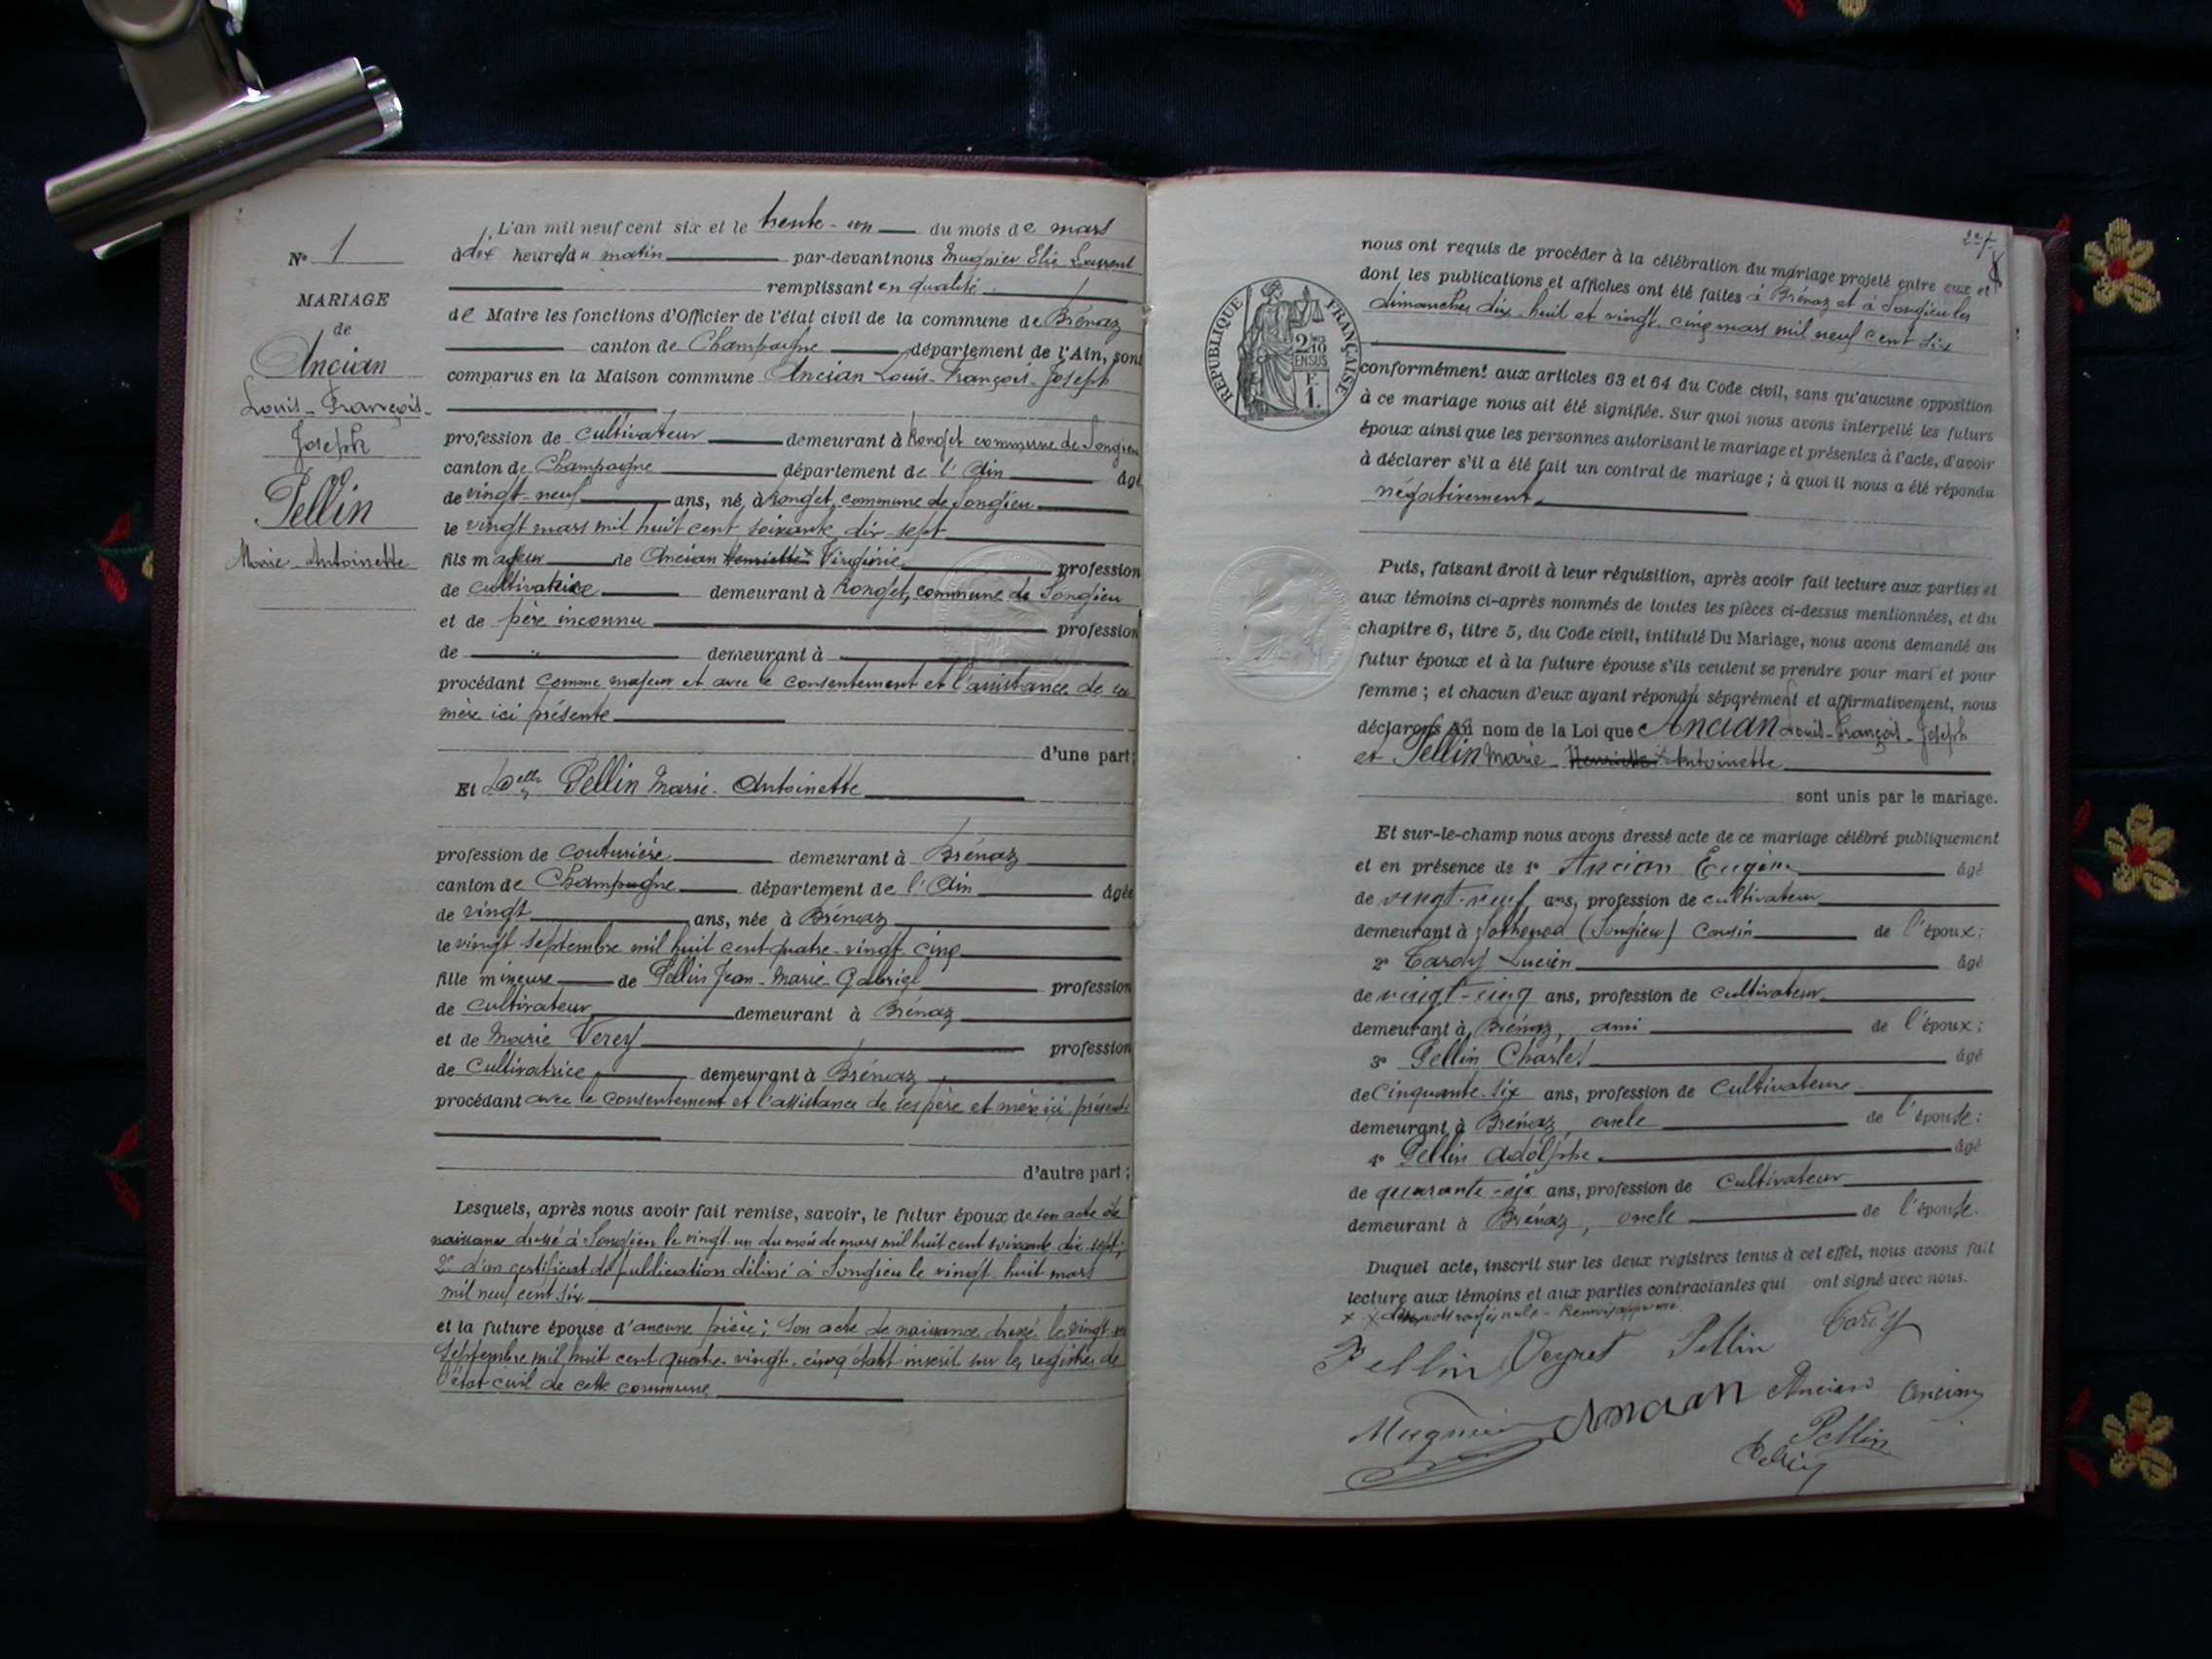 N° 1
MARIAGE
de
Ancian
Louis-François-
Joseph
Pellin
Marie-Antoinette
L'an mil neuf cent six et le trente-un du mois de mars
à dix heures du matin par-devant nous Mugnier Elie Laurent
remplissant en qualité
de Maire les fonctions d'Officier de l'état civil de la commune de Brénaz
canton de Champagne département de l'Ain, sont
comparus en la Maison commune Ancian Louis-François-Joseph
profession de cultivateur demeurant à Ronget commune de Songieu
canton de Champagne département de l'Ain âgé
de vingt-neuf ans, né, à Ronget, commune de Songieu
le vingt mars mil huit cent soixante dix sept
fils majeur de Ancian Henriette Virginie profession
de cultivatrice demeurant à Ronget, commune de Songieu
et de père inconnu profession
de " demeurant à
procédant comme majeur et avec le consentement et l'assistance de sa
mère ici présente
d'une part;
Et Delle Pellin Marie-Antoinette
profession de couturière demeurant à Brénaz
canton de Champagne département de l'Ain âgée
de vingt ans, née à Brénaz
le vingt septembre mil huit cent quatre-vingt-cinq
fille mineure de Pellin Jean-Marie-Gabriel profession
de cultivateur demeurant à Brénaz
et de Marie profession
de cultivatrice demeurant à Brénaz
procédant avec le consentement et l'assistance de ses père et mère ici présents
d'autre part;
Lesquels, après nous avoir fait remise, savoir, le futur époux de son acte de
naissance dressé à Songieu le vingt-un du mois de mars mil huit cent soixante-dix-sept;
2° d'un certificat de publication délivré à Songieu le vingt-huit mars
mil neuf cent six
et la future épouse d'aucune pièce; son acte de naissance dressé le vingt-un
septembre mil huit cent quatre-vingt-cinq étant inscrit sur les registres de
l'état civil de cette commune
nous ont requis de procéder à la célébration du mariage projeté entre eux et
dont les publications et affiches ont été faites à Brénaz et à Songieu les
dimanches dix-huit et vingt-cinq mars mil neuf cent six
RÉPUBLIQUE FRANÇAISE
2/10 EN SUS
F. 1.
conformément aux articles 63 et 64 du Code civil, sans qu'aucune opposition
à ce mariage nous ait été signifiée. Sur quoi nous avons interpellé les futurs
époux ainsi que les personnes autorisant le mariage et présentes à l'acte, d'avoir
à déclarer s'il a été fait un contrat de mariage; à quoi il nous a été répondu
négativement
Puis, faisant droit à leur réquisition, après avoir fait lecture aux parties et
aux témoins ci-après nommés de toutes les pièces ci-dessus mentionnées, et du
chapitre 6, titre 5, du Code civil, intitulé Du Mariage, nous avons demandé au
futur époux et à la future épouse s'ils veulent se prendre pour mari et pour
femme; et chacun d'eux ayant répondu séparément et affirmativement, nous
déclarons au nom de la Loi que Ancian Louis-François-Joseph
et Pellin Marie-Henriette Antoinette
sont unis par le mariage.
Et sur-le-champ nous avons dressé acte de ce mariage célébré publiquement
et en présence de 1° Ancian Eugène âgé
de vingt-neuf ans, profession de cultivateur
demeurant à Sothonod (Songieu) cousin de l'époux;
2° Tardy Lucien âgé
de vingt-cinq ans, profession de cultivateur
demeurant à Brénaz, ami de l'époux;
3° Pellin Charles âgé
de cinquante-six ans, profession de cultivateur
demeurant à Brénaz, oncle de l'épouse;
4° Pellin Adolphe âgé
de quarante-six ans, profession de cultivateur
demeurant à Brénaz, oncle de l'épouse.
Duquel acte, inscrit sur les deux registres tenus à cet effet, nous avons fait
lecture aux témoins et aux parties contractantes qui ont signé avec nous.
Pellin Pellin Tardy
Mugnier Ancian Ancian Ancian
Pellin